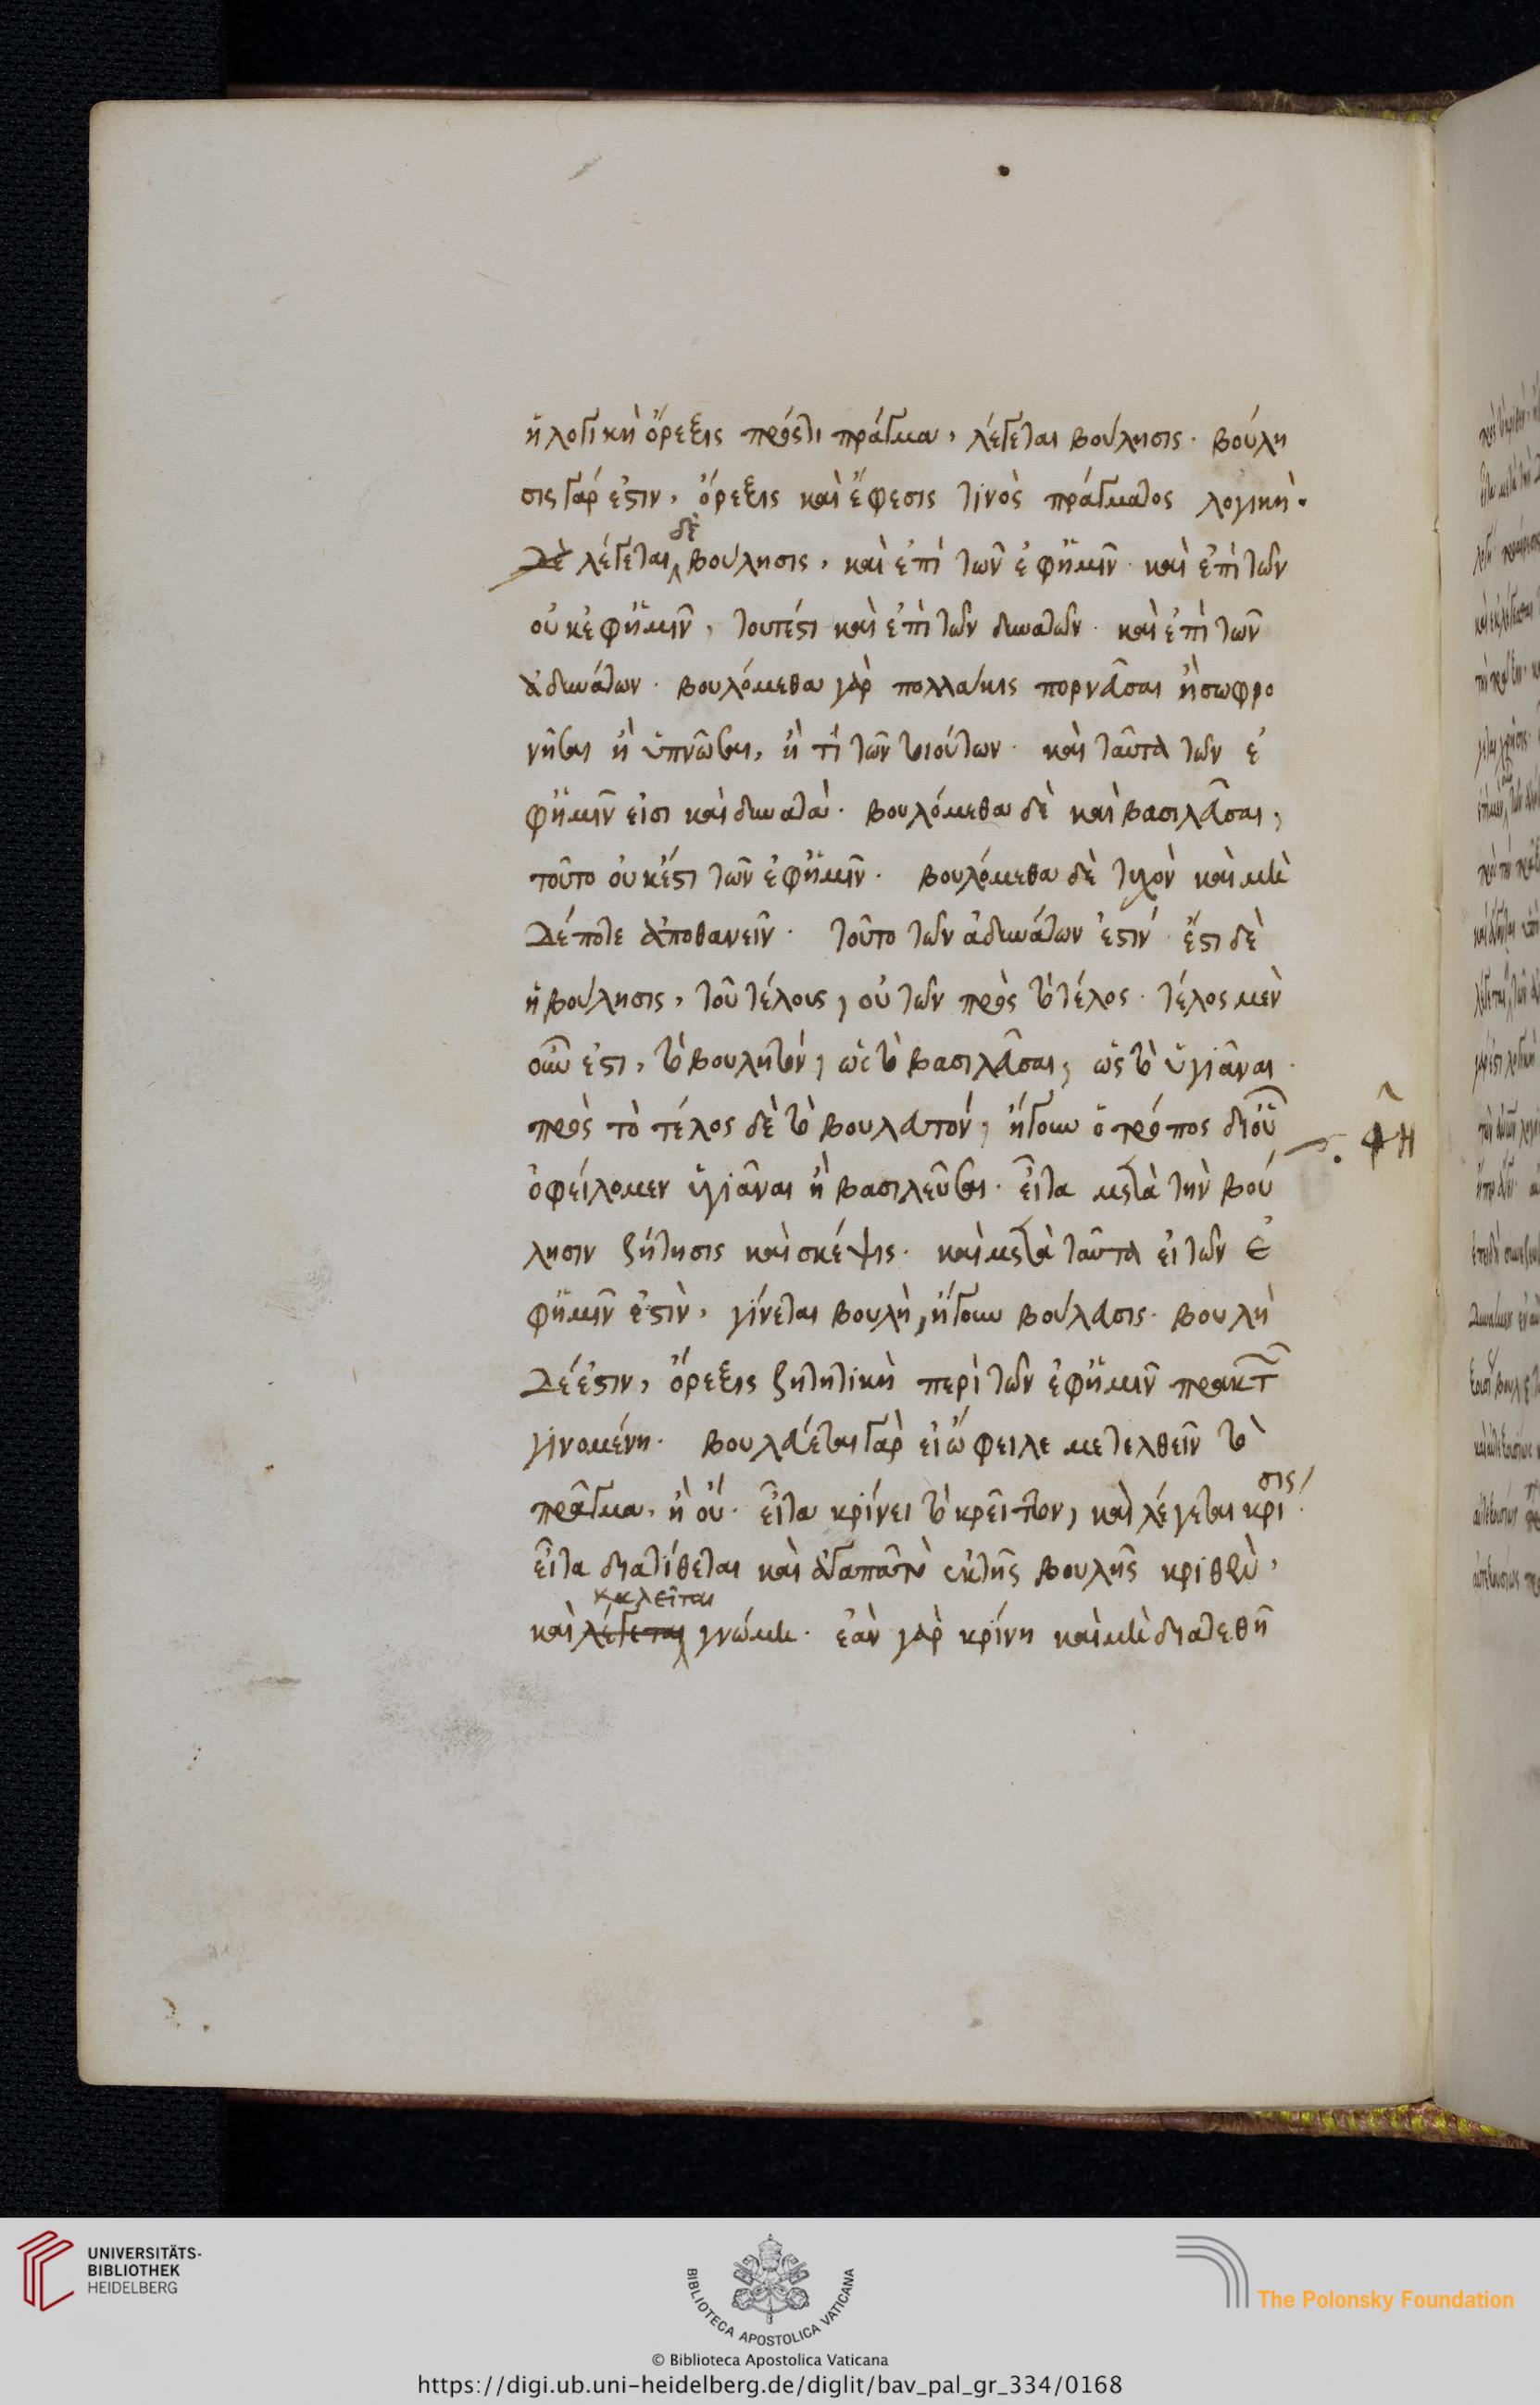 ἡ λογικὴ ὄρεξις πρός τι πρᾶγμα, λέγεται βούλησις. βούλη
σις γάρ ἐστιν, ὄρεξις καὶ ἔφεσις τινὸς πράγματος λογική.
δὲ
Δὲ λέγεται βούλησις, καὶ ἐπὶ τῶν ἐφ ἡμῖν. καὶ ἐπὶ τῶν
οὐκ ἐφ ἡμῖν, τουτέστι καὶ ἐπὶ τῶν δυνατῶν. καὶ ἐπὶ τῶν
ἀδυνάτων. βουλόμεθα γὰρ πολλάκις πορνεῦσαι ἢ σωφρο
νῆσαι ἢ ὑπνῶσαι, ἤ τι τῶν τοιούτων. καὶ ταῦτα τῶν ἐ
φ ἡμῖν εἰσι καὶ δυνατά. βουλόμεθα δὲ καὶ βασιλεῦσαι,
τοῦτο οὐκ ἔστι τῶν ἐφ ἡμῖν. βουλόμεθα δὲ τυχὸν καὶ μη
δέποτε ἀποθανεῖν. τοῦτο τῶν ἀδυνάτων ἐστίν. ἔστι δὲ
ἡ βούλησις, τοῦ τέλους, οὐ τῶν πρὸς τὸ τέλος. τέλος μὲν
οὖν ἐστι, τὸ βουλητόν, ὡς τὸ βασιλεῦσαι, ὡς τὸ ὑγιᾶναι.
πρὸς τὸ τέλος δὲ τὸ βουλευτόν, ἤγουν ὁ τρόπος δι οὗ
φη
ὀφείλομεν ὑγιᾶναι ἢ βασιλεῦσαι. εἶτα μετὰ τὴν βού
λησιν ζήτησις καὶ σκέψις. καὶ μετὰ ταῦτα εἰ τῶν ἐ
φ ἡμῖν ἐστὶν, γίνεται βουλὴ, ἤγουν βούλευσις. βουλὴ
δέ ἐστιν, ὄρεξις ζητητικὴ περὶ τῶν ἐφ ἡμῖν πρακτ
γινομένη. βουλεύεται γὰρ εἰ ὤφειλε μετελθεῖν τὸ
πρᾶγμα, ἢ οὔ. εἶτα κρίνει τὸ κρεῖττον, καὶ λέγεται κρί
σις
εἶτα διατίθεται καὶ ἀγαπᾶ τὸ ἐκ τῆς βουλῆς κριθὲν,
καλεῖται
καὶ λέγεται γνώμη. ἐὰν γὰρ κρίνη καὶ μὴ διατεθῆ
UNIVERSITÄTS-
BIBLIOTHEK
HEIDELBERG
BIBLIOTECA APOSTOLICA VATICANA
The Polonsky Foundation
© Biblioteca Apostolica Vaticana
https://digi.ub.uni-heidelberg.de/diglit/bav_pal_gr_334/0168